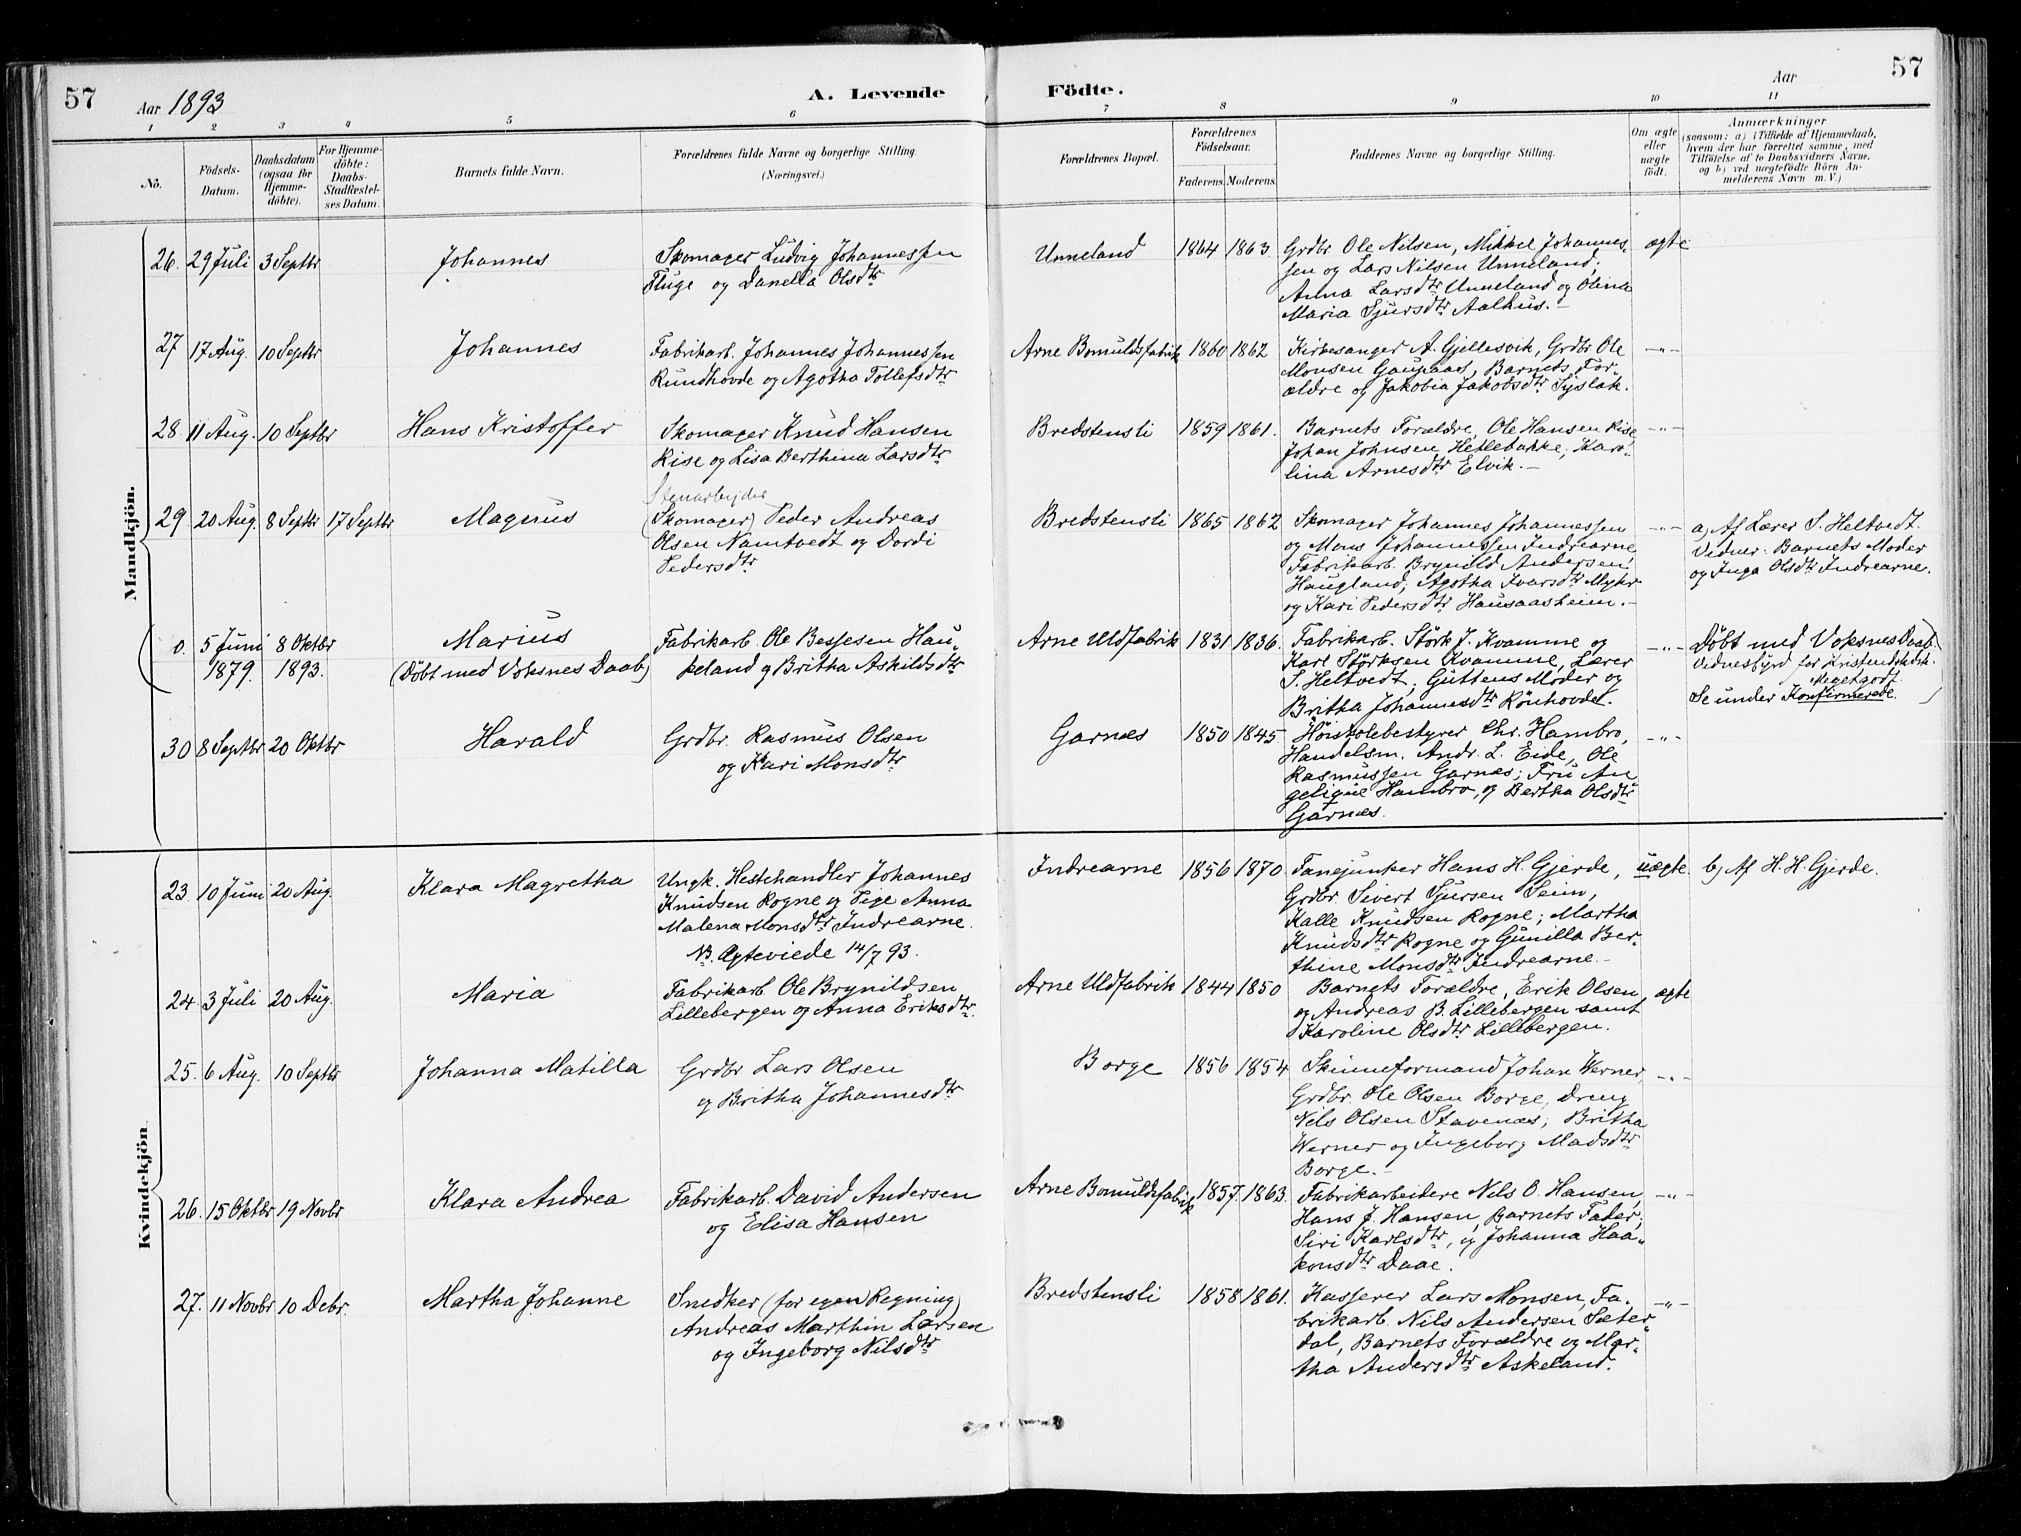 57
Aar 1893
A. Levende Födte.
Aar
57
1 2 3 4 5 6 7 8 9 10 11
No.
Födsels-Datum.
Daabsdatum (ogsaa for Hjemme-döbte).
For Hjemme-döbte: Daabs-Stadfæstel-ses Datum.
Barnets fulde Navn.
Forældrenes fulde Navne og borgerlige Stilling.
(Næringsvei.)
Forældrenes Bopæl.
Forældrenes Födselsaar.
Faderens. Moderens.
Faddernes Navne og borgerlige Stilling.
Om ægte eller uægte födt.
Anmærkninger
(saasom: a) i Tilfælde af Hjemmedaab,
hvem der har forrettet samme, med
Tilföielse af to Daabsvidners Navne,
og b) ved uægtefödte Börn An-
melderens Navn m. V.)
Mandkjön.
26. 29 Juli 3 Septbr Johannes
Skomager Ludvig Johannessen
Fluge og Danella Olsdtr
Unneland 1864 1863
Grdbr Ole Nilsen, Mikkel Johannes-
sen og Lars Nilsen Unneland;
Anna Larsdtr Unneland og Olina
Maria Sjursdtr Aalhus.-
ægte
27 17 Aug. 10 Septbr Johannes
Fabrikarb. Johannes Johannessen
Rundhovde og Agotha Tollefsdtr
Arne Bomuldsfabrik 1860 1862
Kirkesanger A. Gjellesvik, Grdbr Ole
Monsen Gaupaas, Barnets For-
ældre og Jakobia Jakobsdtr Syslak.
-"-
28. 11 Aug. 10 Septbr Hans Kristoffer
Skomager Knud Hansen
Rise og Lisa Berthina Larsdtr
Bredstensli 1859 1861.
Barnets Forældre, Ole Hansen Rise,
Johan Johnsen Hetlebakke, Karo-
lina Arnesdtr Elvik.-
-"-
29 20 Aug. 8 Septbr 17 Septbr Magnus
Stenarbejder
(Skomager) Peder Andreas
Olsen Namtvedt og Dordi
Pedersdtr
Bredstensli 1865 1862
Skomager Johannes Johannessen
og Mons Johannessen Indrearne,
Fabrikarb. Brynild Andersen
Haugland; Agotha Ivarsdtr Myhr
og Kari Pedersdtr Hausaasheim.-
-"-
a) Af Lærer S. Heltvedt.
Vidner: Barnets Moder
og Inga Olsdtr Indrearne.
0. 5 Juni 1879. 8 Oktbr 1893. Marius
(Döbt med Voksnes Daab)
Fabrikarb. Ole Bessesen Hau-
keland og Britha Askildsdtr
Arne Uldfabrik 1831 1836.
Fabrikarb. Störk J. Kvamme og
Karl Störksen Kvamme, Lærer
S. Heltvedt; Guttens Moder og
Britha Johannesdtr Rönhovde.
-"-
Döbt med Voksnes Daab.
Vidnesbyrd for Kristendskdsk.
Meget godt.
Se under Konfirmerede.
30 8 Septbr 20 Oktbr Harald
Grdbr. Rasmus Olsen
og Kari Monsdtr
Garnæs 1850 1845
Höiskolebestyrer Chr. Hambro,
Handelsm. Andr. L. Eide, Ole
Rasmussen Garnæs; Fru An-
gelique Hambro, og Bertha Olsdtr
Garnæs.
-"-
Kvindekjön
23. 10 Juni 20 Aug. Klara Magretha
Ungk. Hestehandler Johannes
Knudsen Rogne og Pige Anna
Malena Monsdtr Indrearne.
NB. Ægteviede 14/7 93.
Indrearne 1856 1870
Fanejunker Hans H. Gjerde,
Grdbr. Sivert Sjursen Seim,
Kalle Knudsen Rogne; Martha
Knudsdtr Rogne og Gunilla Ber-
thine Monsdtr Indrearne.-
uægte.
b) Af H. H. Gjerde.
24. 3 Juli 20 Aug. Maria
Fabrikarb. Ole Brynildsen
Lillebergen og Anna Eriksdtr.
Arne Uldfabrik 1844 1850
Barnets Forældre, Erik Olsen,
og Andreas B. Lillebergen samt
Karoline Olsdtr Lillebergen.
ægte
25. 6 Aug. 10 Septbr Johanna Matilla
Grdbr Lars Olsen
og Britha Johannesdtr
Borge 1856 1854
Skinneformand Johan Werner,
Grdbr. Ole Olsen Borge, Dreng
Nils Olsen Stavenæs; Britha
Werner og Ingeborg Madsdtr
Borge.-
-"-
26. 15 Oktbr 19 Novbr Klara Andrea
Fabrikarb. David Andersen
og Elisa Hansen
Arne Bomuldsfabrik 1857. 1863.
Fabrikarbeidere Nils O. Hansen,
Hans J. Hansen, Barnets Fader;
Siri Karlsdtr, og Johanna Haa-
konsdtr Daae.
-"-
27. 11 Novbr 10 Debr. Martha Johanne
Snedker (for egen Regning)
Andreas Marthin Larsen
og Ingeborg Nilsdtr
Bredstensli 1858 1861.
Kasserer Lars Monsen, Fa-
brikarb. Nils Andersen Sæter-
dal, Barnets Forældre og Mar-
tha Andersdtr Askeland.
-"-